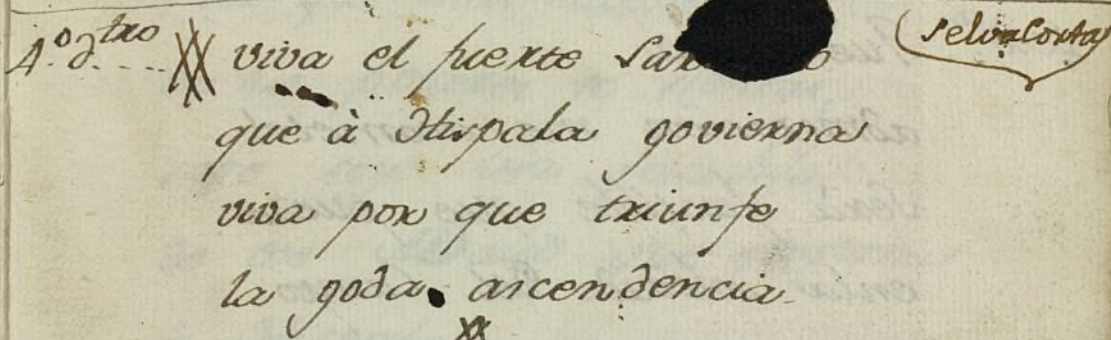 4.º d.tro viva el fuerte selva corta
que à Hispala govierna
viva por que triunfe
la goda ascendencia